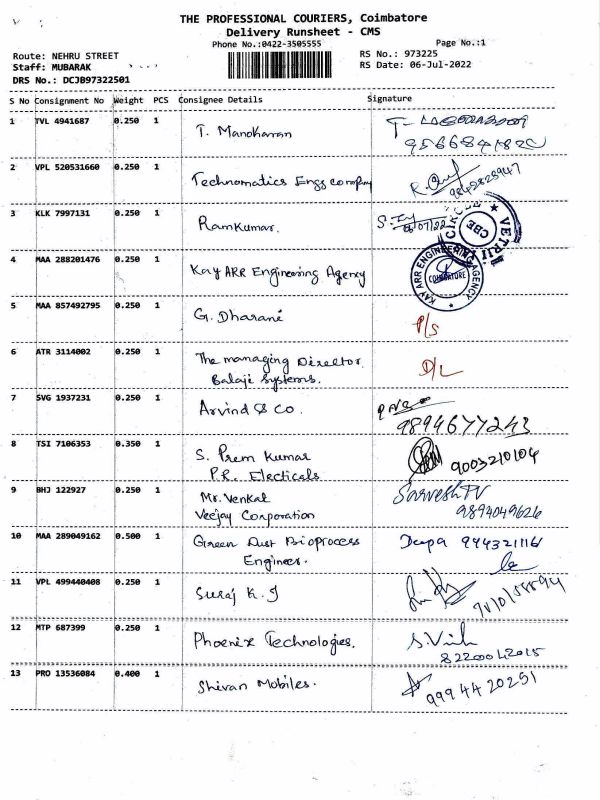 THE PROFESSIONAL COURIERS, Coimbatore
Delivery Runsheet - CMS
Phone No.:0422-3505555 Page No.:1
Route: NEHRU STREET RS No.: 973225
Staff: MUBARAK RS Date: 06-Jul-2022
DRS No.: DCJB97322501
S No Consignment No Weight PCS Consignee Details Signature
1 TVL 4941687 0.250 1 T. Manokaran
2 VPL 520531660 0.250 1 Technomatics Engg company
3 KLK 7997131 0.250 1 Ramkumar.
VETRII CBE
4 MAA 288201476 0.250 1 Kay ARR Engineering Agency
KAY ARR ENGINEERING AGENCY COIMBATORE
5 MAA 857492795 0.250 1 G. Dharani P/S
6 ATR 3114002 0.250 1 The managing Director. D/L
Balaji Systems.
7 SVG 1937231 0.250 1 Arvind & Co.
9894677243
8 TSI 7106353 0.350 1 S. Prem Kumar
P.R. Electicals 9003210104
9 BHJ 122927 0.250 1 Mr. Venkat SarveshPV
Veejay Corporation 9894049626
10 MAA 289049162 0.500 1 Green Dust Bioprocess Deepa 9943211161
Engineer.
11 VPL 499440408 0.250 1 Suraj K.J
12 MTP 687399 0.250 1 Phoenix Technologies.
8220042015
13 PRO 13536084 0.400 1 Shivan Mobiles. 9994420251